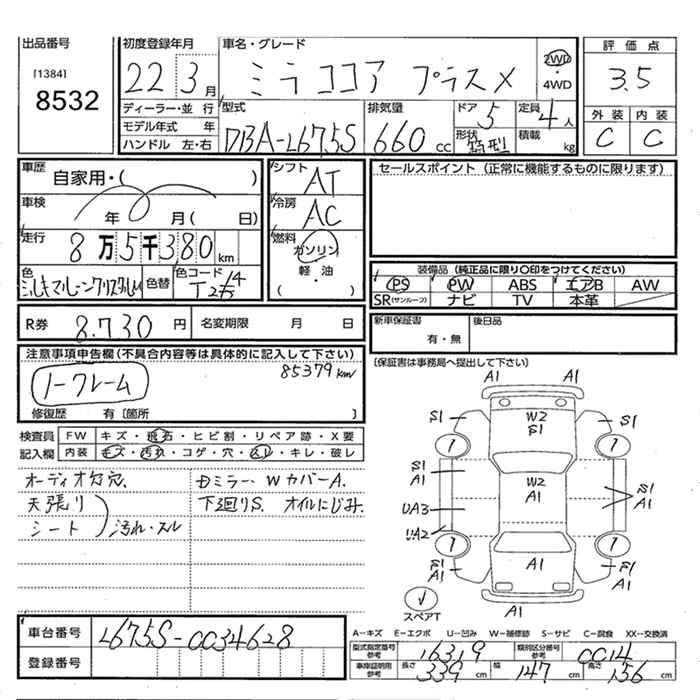 出品番号
[1384]
8532
初度登録年月
22 3月
車名・グレード
ミラココア プラスX
2WD
・
4WD
評価点
3.5
外装 内装
C C
ディーラー・並 行
モデル年式 年
ハンドル 左・右
型式
DBA-L675S
排気量
660 cc
ドア
5
形状
箱型
定員
4人
積載
kg
車歴
自家用・( )
車検
年 月 ( 日)
走行
8万5千380km
色
色替
色コード
T24
シフト
AT
冷房
AC
燃料
ガソリン
軽・油
・
( )
セールスポイント(正常に機能するものに限ります)
装備品(純正品に限り〇印をつけてください)
PS PW ABS エアB AW
SR(サンルーフ) ナビ TV 本革
R券 8.730円
名変期限 月 日
新車保証書
有・無
後日品
注意事項申告欄(不具合内容等は具体的に記入して下さい)
85379km
ノークレーム
修復歴 有〔箇所 〕
〔保証書は事務局へ提出して下さい〕
検査員
記入欄
FW キズ・飛石・ヒビ割・リペア跡・X要
内装 キズ・汚れ・コゲ・穴・スレ・キレ・破レ
オーディオ欠穴.
天張り
シート
汚れ・スル
Dミラー・WカバーA.
下廻りS. オイルにじみ.
A1 A1
S1 W2 S1 S1
S1 A1
W2 A1
S1 A1
UA3
UA2
A1
S1 A1
S1 A1
A1 A1
スペアT
車台番号 L675S-0034628
登録番号
A-キズ E-エクボ U-凹み W-補修跡 S-サビ C-腐食 XX-交換済
型式指定番号
参考
16319
類別区分番号
参考
0014
車庫証明用
参考
長さ 339cm
幅 147cm
高さ 156cm